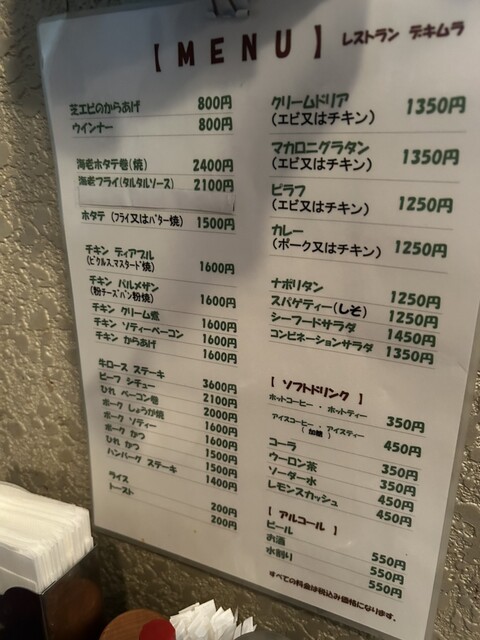 【 M E N U 】 レストラン デキムラ
芝エビのからあげ 800円
ウインナー 800円
海老ホタテ巻(焼) 2400円
海老フライ(タルタルソース) 2100円
ホタテ (フライ又はバター焼) 1500円
チキン ディアブル
(ピクルス、マスタード焼) 1600円
チキン パルメザン
(粉チーズパン粉焼) 1600円
チキン クリーム煮 1600円
チキン ソティーベーコン 1600円
チキン からあげ 1600円
牛ロース ステーキ 3600円
ビーフ シチュー 2100円
ひれ ベーコン巻 2000円
ポーク しょうが焼 1600円
ポーク ソティー 1600円
ポーク かつ 1500円
ひれ かつ 1500円
ハンバーグ ステーキ 1400円
ライス 200円
トースト 200円
クリームドリア 1350円
(エビ又はチキン)
マカロニグラタン 1350円
(エビ又はチキン)
ピラフ 1250円
(エビ又はチキン)
カレー 1250円
(ポーク又はチキン)
ナポリタン 1250円
スパゲティー(しそ) 1250円
シーフードサラダ 1450円
コンビネーションサラダ 1350円
【 ソフトドリンク 】
ホットコーヒー ・ ホットティー 350円
アイスコーヒー ・ アイスティー 450円
( 加糖 )
コーラ 350円
ウーロン茶 350円
ソーダー水 450円
レモンスカッシュ 450円
【 アルコール 】
ビール 550円
お酒 550円
水割り 550円
すべての料金は税込み価格になります。